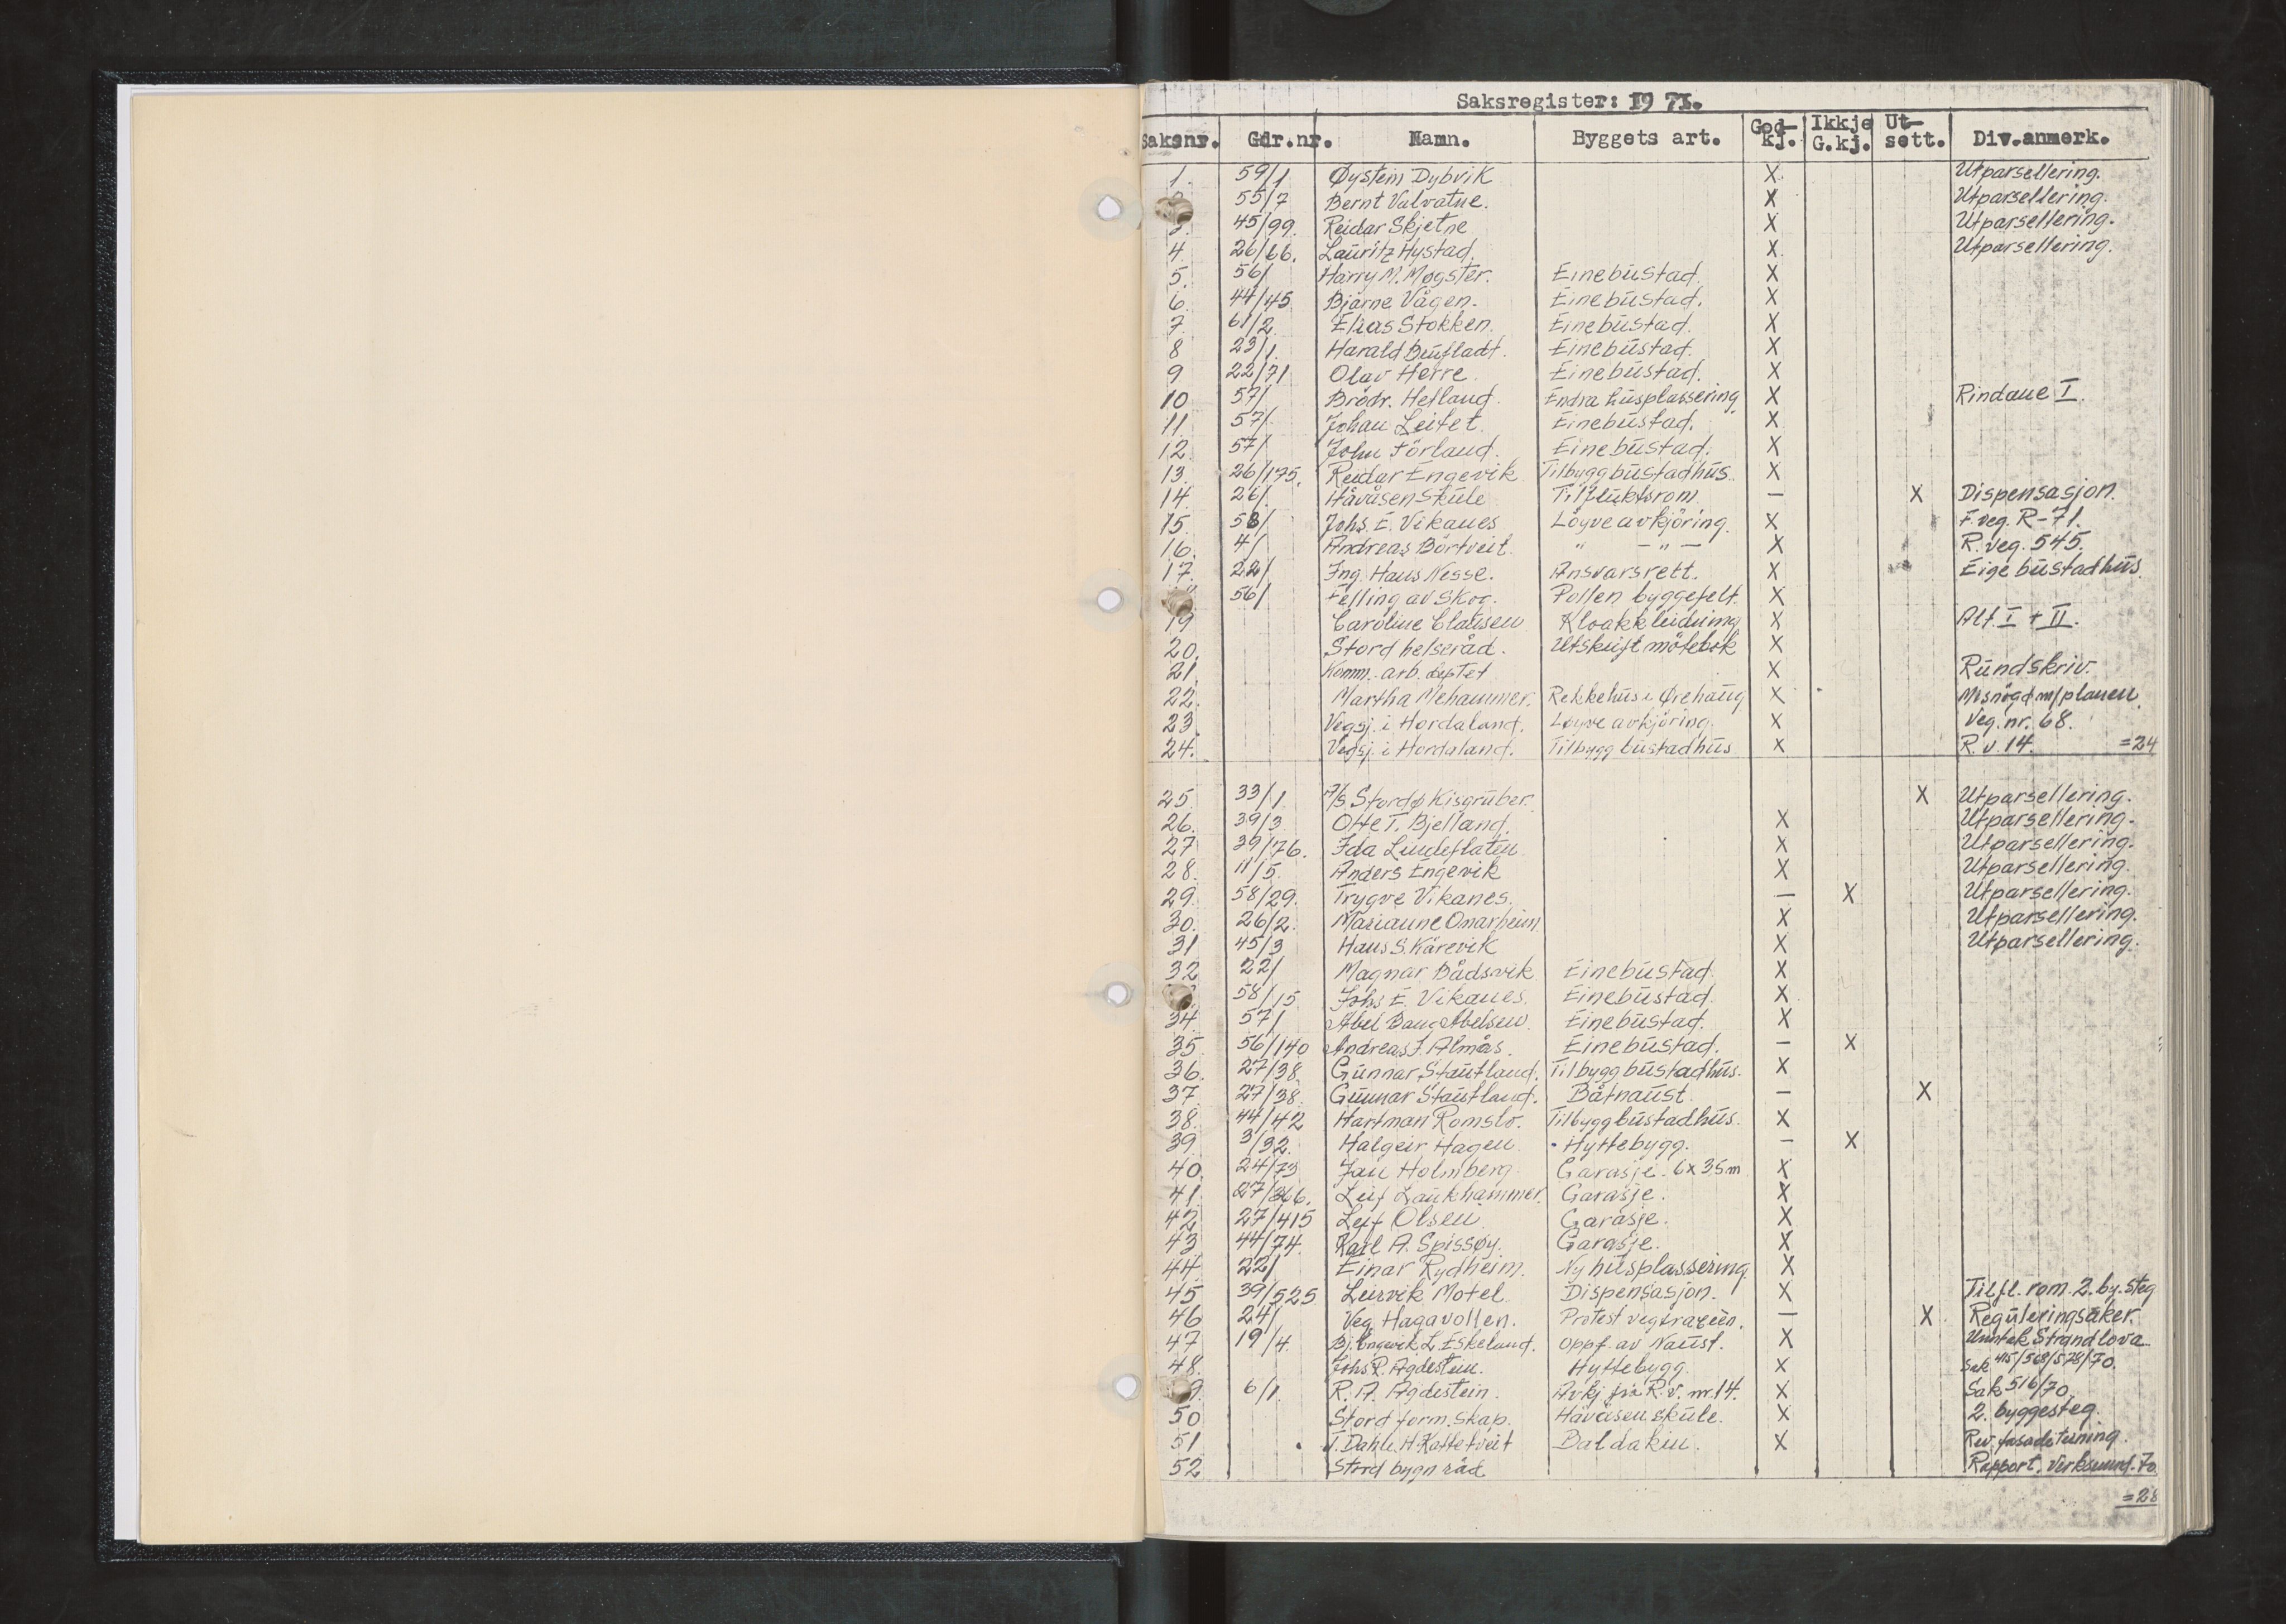 Saksregister: 1971.
Saksnr. Gdr.nr. Namn. Byggets art. God-kj. Ikkje G.kj. Ut-sett. Div.anmerk.
1. 59/1 Øystein Dybvik X Utparsellering.
55/7 Bernt Valvatne. X Utparsellering.
3. 45/99. Reidar Skjetne X Utparsellering.
4. 26/66. Lauritz Hystad. X Utparsellering.
5. 56/ Harry M. Møgster. Einebustad. X
6. 44/45 Bjarne Vågen. Einebustad. X
7. 61/2. Elias Stokken. Einebustad. X
8 23/1. Harald Einebustad. X
9 22/71 Olav Herre. Einebustad. X
10 57/ Brødr. Hetland. Endra husplassering X Rindane I.
11. 57/ Johan Leitet. Einebustad. X
12. 57/ John Førland. Einebustad. X
13. 26/175. Reidar Engevik Tilbygg bustadhus. X
14. 26/. Håvåsen Skule Tilfluktsrom — X Dispensasjon.
15. 58/ Johs. E. Vikanes Løyve avkjøring. X F.veg. R-71.
16. 4/ Andreas Børtveit. " — " — X R.veg. 545.
17. 22/ Ing. Hans Nesse. Ansvarsrett. X Eige bustadhus.
56/ Felling av skog. Pollen byggefelt. X
19 Caroline Clausen Kloakkleidning X Alt. I + II.
20. Stord helseråd. Utskrift møtebok X
21. Komm.- arb. deptet X Rundskriv.
22. Martha Mehammer. Rekkehus i Ørehaug X Misnøgd m/planen.
23. Vegsj. i Hordaland. Løyve avkjøring. X Veg. nr. 68.
24. Vegsj. i Hordaland. Tilbygg bustadhus X R.v. 14. =24
25. 33/1 A/S Stordø Kisgruber. X Utparsellering.
26. 39/3 Otte T. Bjelland. X Utparsellering.
27 39/76. Ida Lindeflaten X Utparsellering.
28. 11/5. Anders Engevik X Utparsellering.
29. 58/29. Trygve Vikanes. — X Utparsellering.
30. 26/2. Marianne Onarheim. X Utparsellering.
31 45/3 Hans S. Kårevik X Utparsellering.
32 22/ Magnar Bådsvik Einebustad. X
58/15. Johs E. Vikanes. Einebustad. X
34. 57/ Abel Bang Abelsen. Einebustad. X
35 56/140 Andreas J. Almås. Einebustad. — X
36. 27/38. Gunnar Stautland. Tilbygg bustadhus. X
37 27/38. Gunnar Stautland. Båtnaust. — X
38. 44/42 Hartman Romslo. Tilbygg bustadhus. X
39. 3/32. Halgeir Hagen Hyttebygg. — X
40. 24/73 Jan Holmberg. Garasje. 6x35m X
41. 27/366. Leif Laukhammer. Garasje. X
42 27/415 Leif Olsen Garasje. X
43 44/74. Karl A. Spissøy. Garasje. X
44. 22/ Einar Rydheim. Ny husplassering. X
45 39/525 Leirvik Motel. Dispensasjon. X Tilfl. rom. 2. by. steg
46 24/ Veg Hagavollen. Protest vegtraseen. — X Reguleringsaker.
47 19/4. Bj. Engevik L. Eskeland. Oppf. av Naust. X Unntak Strandlova
48. Johs R. Agdestein. Hyttebygg X Sak 415/568/578/70.
9. 6/1. R. A. Agdestein. Avkj frå R.v. nr. 14. X Sak 516/70.
50 Stord form.skap. Håvåsen skule. X 2. byggesteg.
51 T. Dahle. H. Kattetveit Baldakin. X Rev. fasadeteikning
52 Stord bygn råd Rapport. Verksemd. 70.
=28